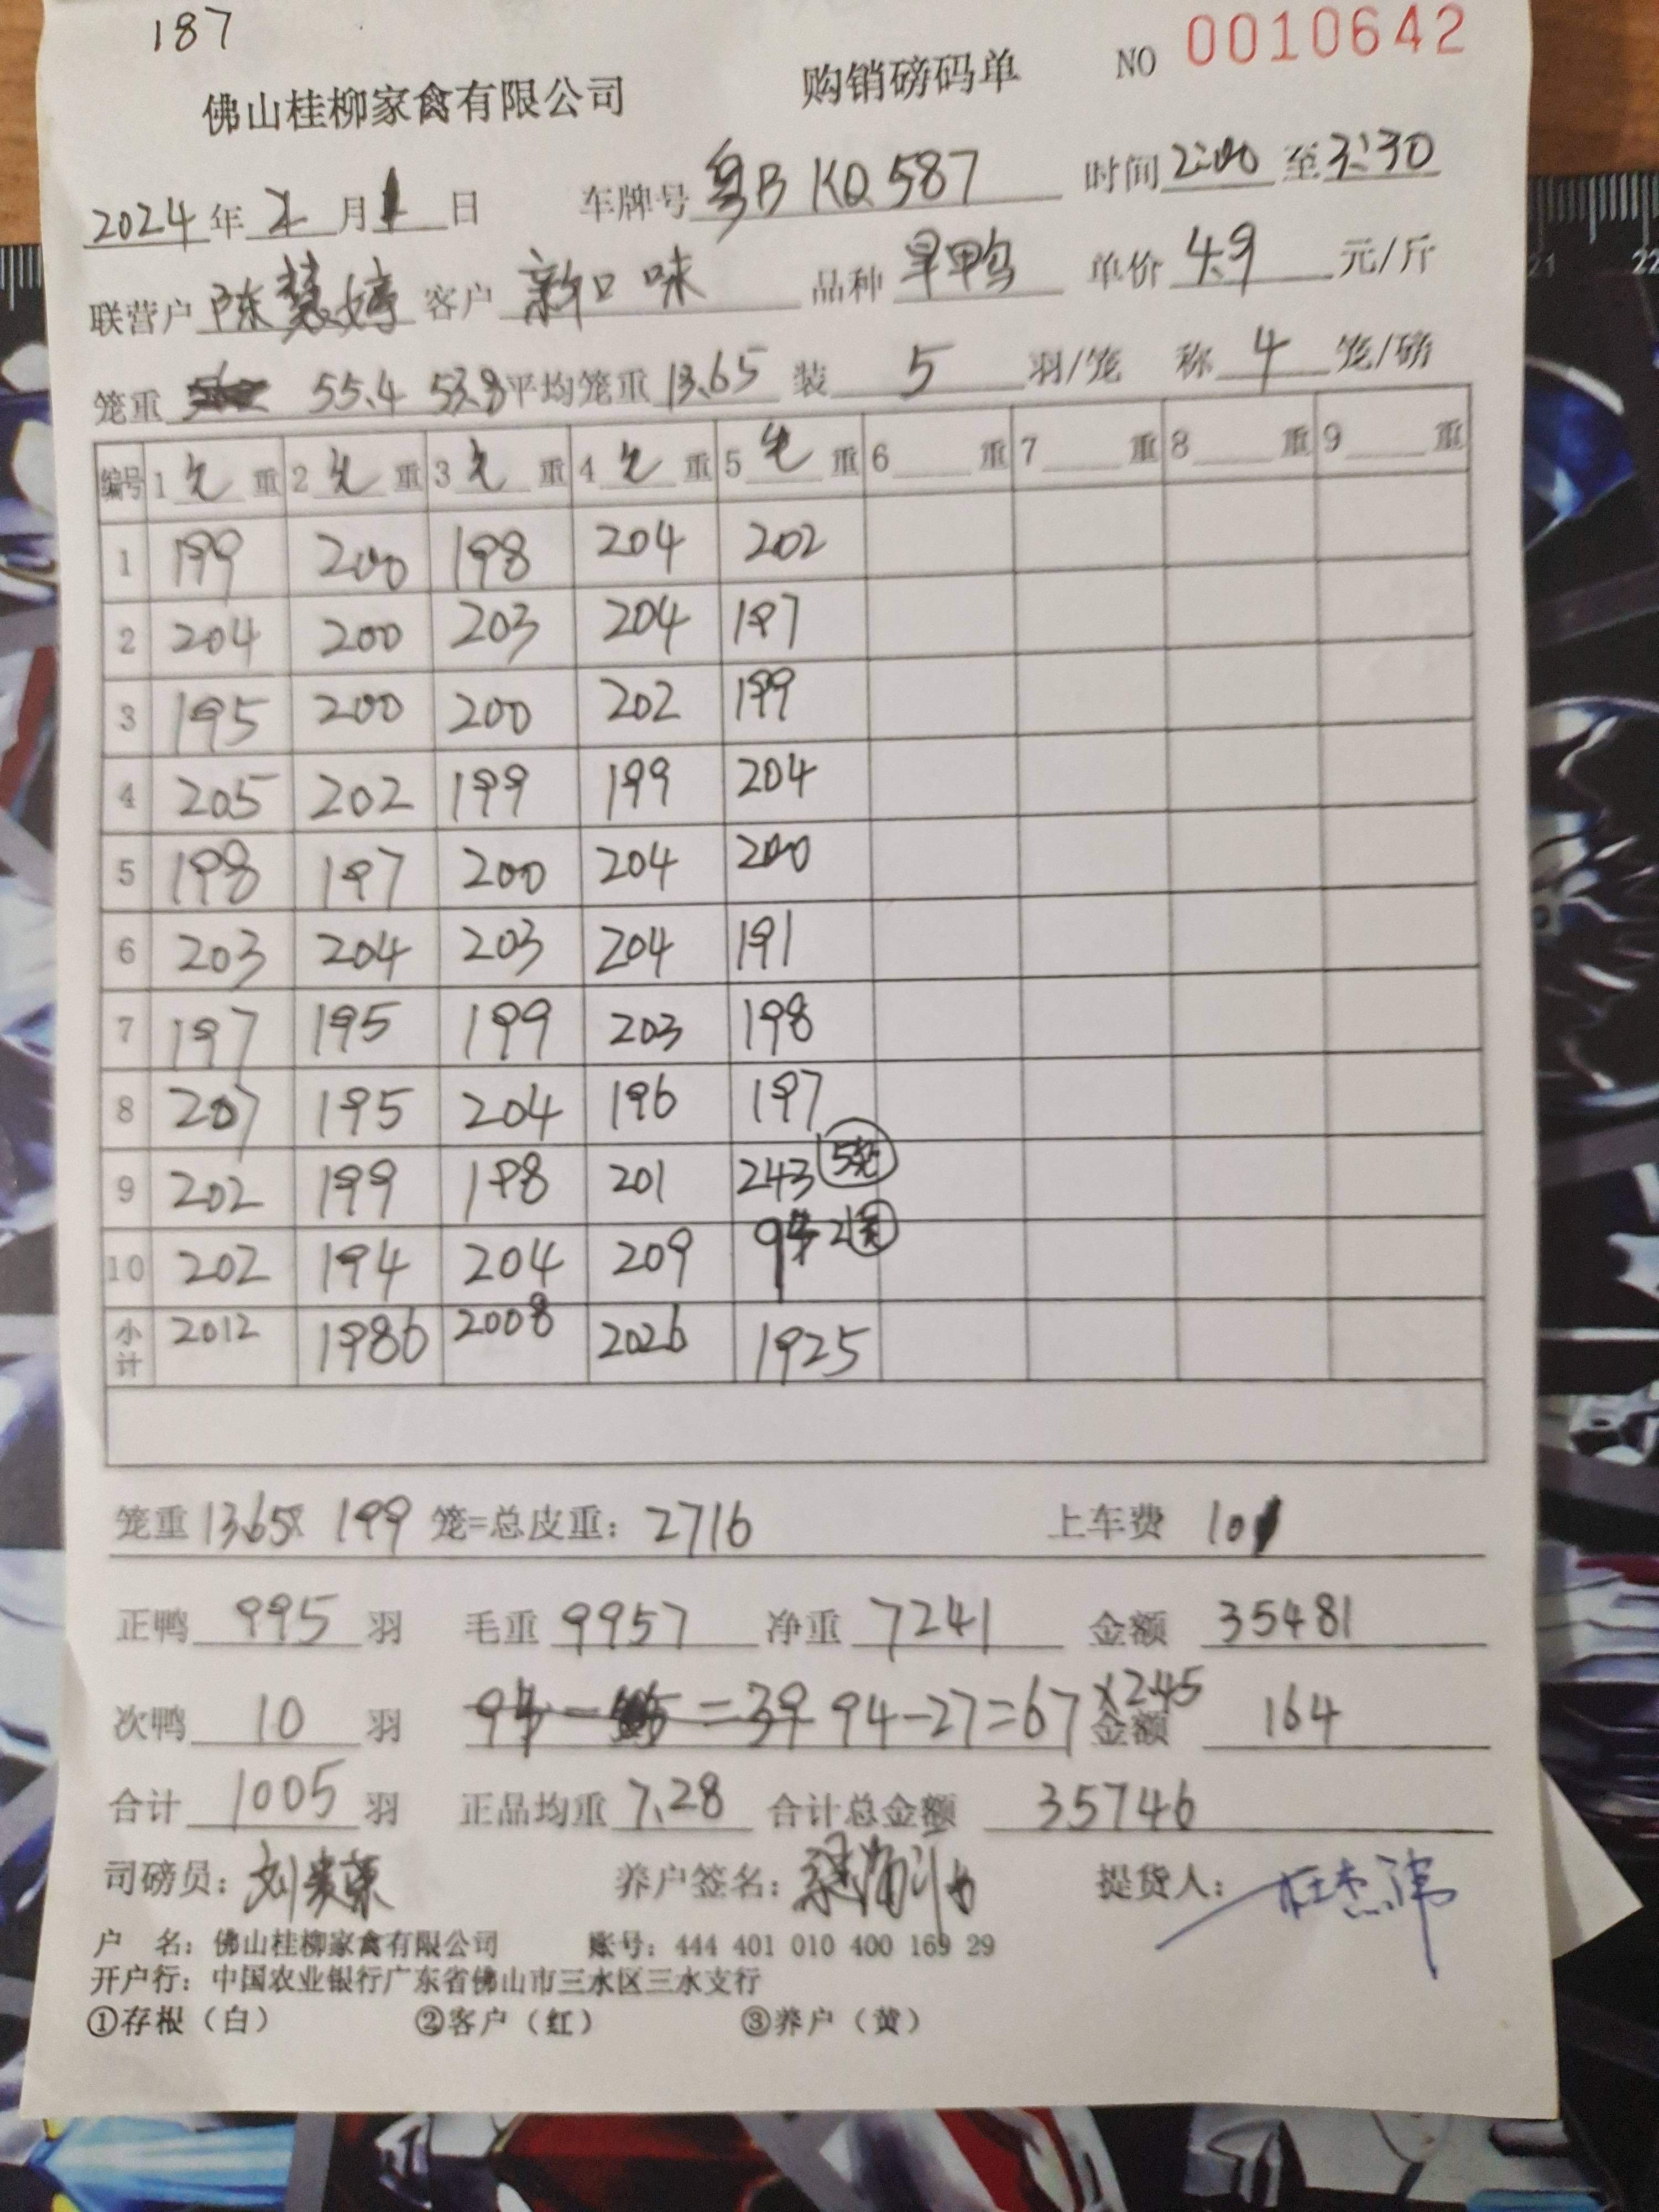 187
佛山桂柳家禽有限公司 购销磅码单 NO 0010642
2024年2月1日 车牌号 粤B KQ587 时间 2:00 至 3:30
联营户 陈慧婷 客户 新口味 品种 旱鸭 单价 4.9 元/斤
笼重 55.4 53.8 平均笼重 13.65 装 5 羽/笼 称 4 笼/磅
编号 1 毛 重 2 毛 重 3 毛 重 4 毛 重 5 毛 重 6 重 7 重 8 重 9 重
1 199 200 198 204 202
2 204 200 203 204 197
3 195 200 200 202 199
4 205 202 199 199 204
5 198 197 200 204 200
6 203 204 203 204 191
7 197 195 199 203 198
8 207 195 204 196 197
9 202 199 198 201 243 5笼
10 202 194 204 209 94 2
小计 2012 1986 2008 2026 1925
笼重 13.65X 199 笼=总皮重: 2716 上车费 101
正鸭 995 羽 毛重 9957 净重 7241 金额 35481
次鸭 10 羽 =39 94-27=67 X2.45 金额 164
合计 1005 羽 正品均重 7.28 合计总金额 35746
司磅员: 养户签名: 提货人: 杜杰沛
户 名: 佛山桂柳家禽有限公司 账号: 444 401 010 400 169 29
开户行: 中国农业银行广东省佛山市三水区三水支行
①存根（白） ②客户（红） ③养户（黄）